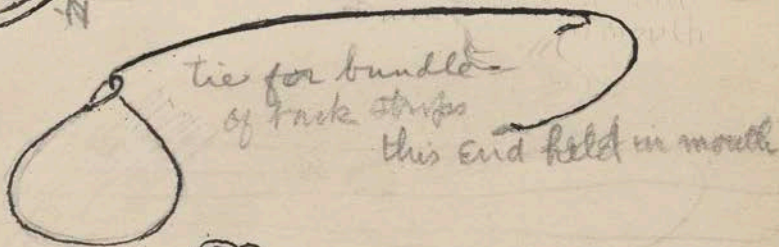 tie for bundle
of rack strips
this end held in mouth